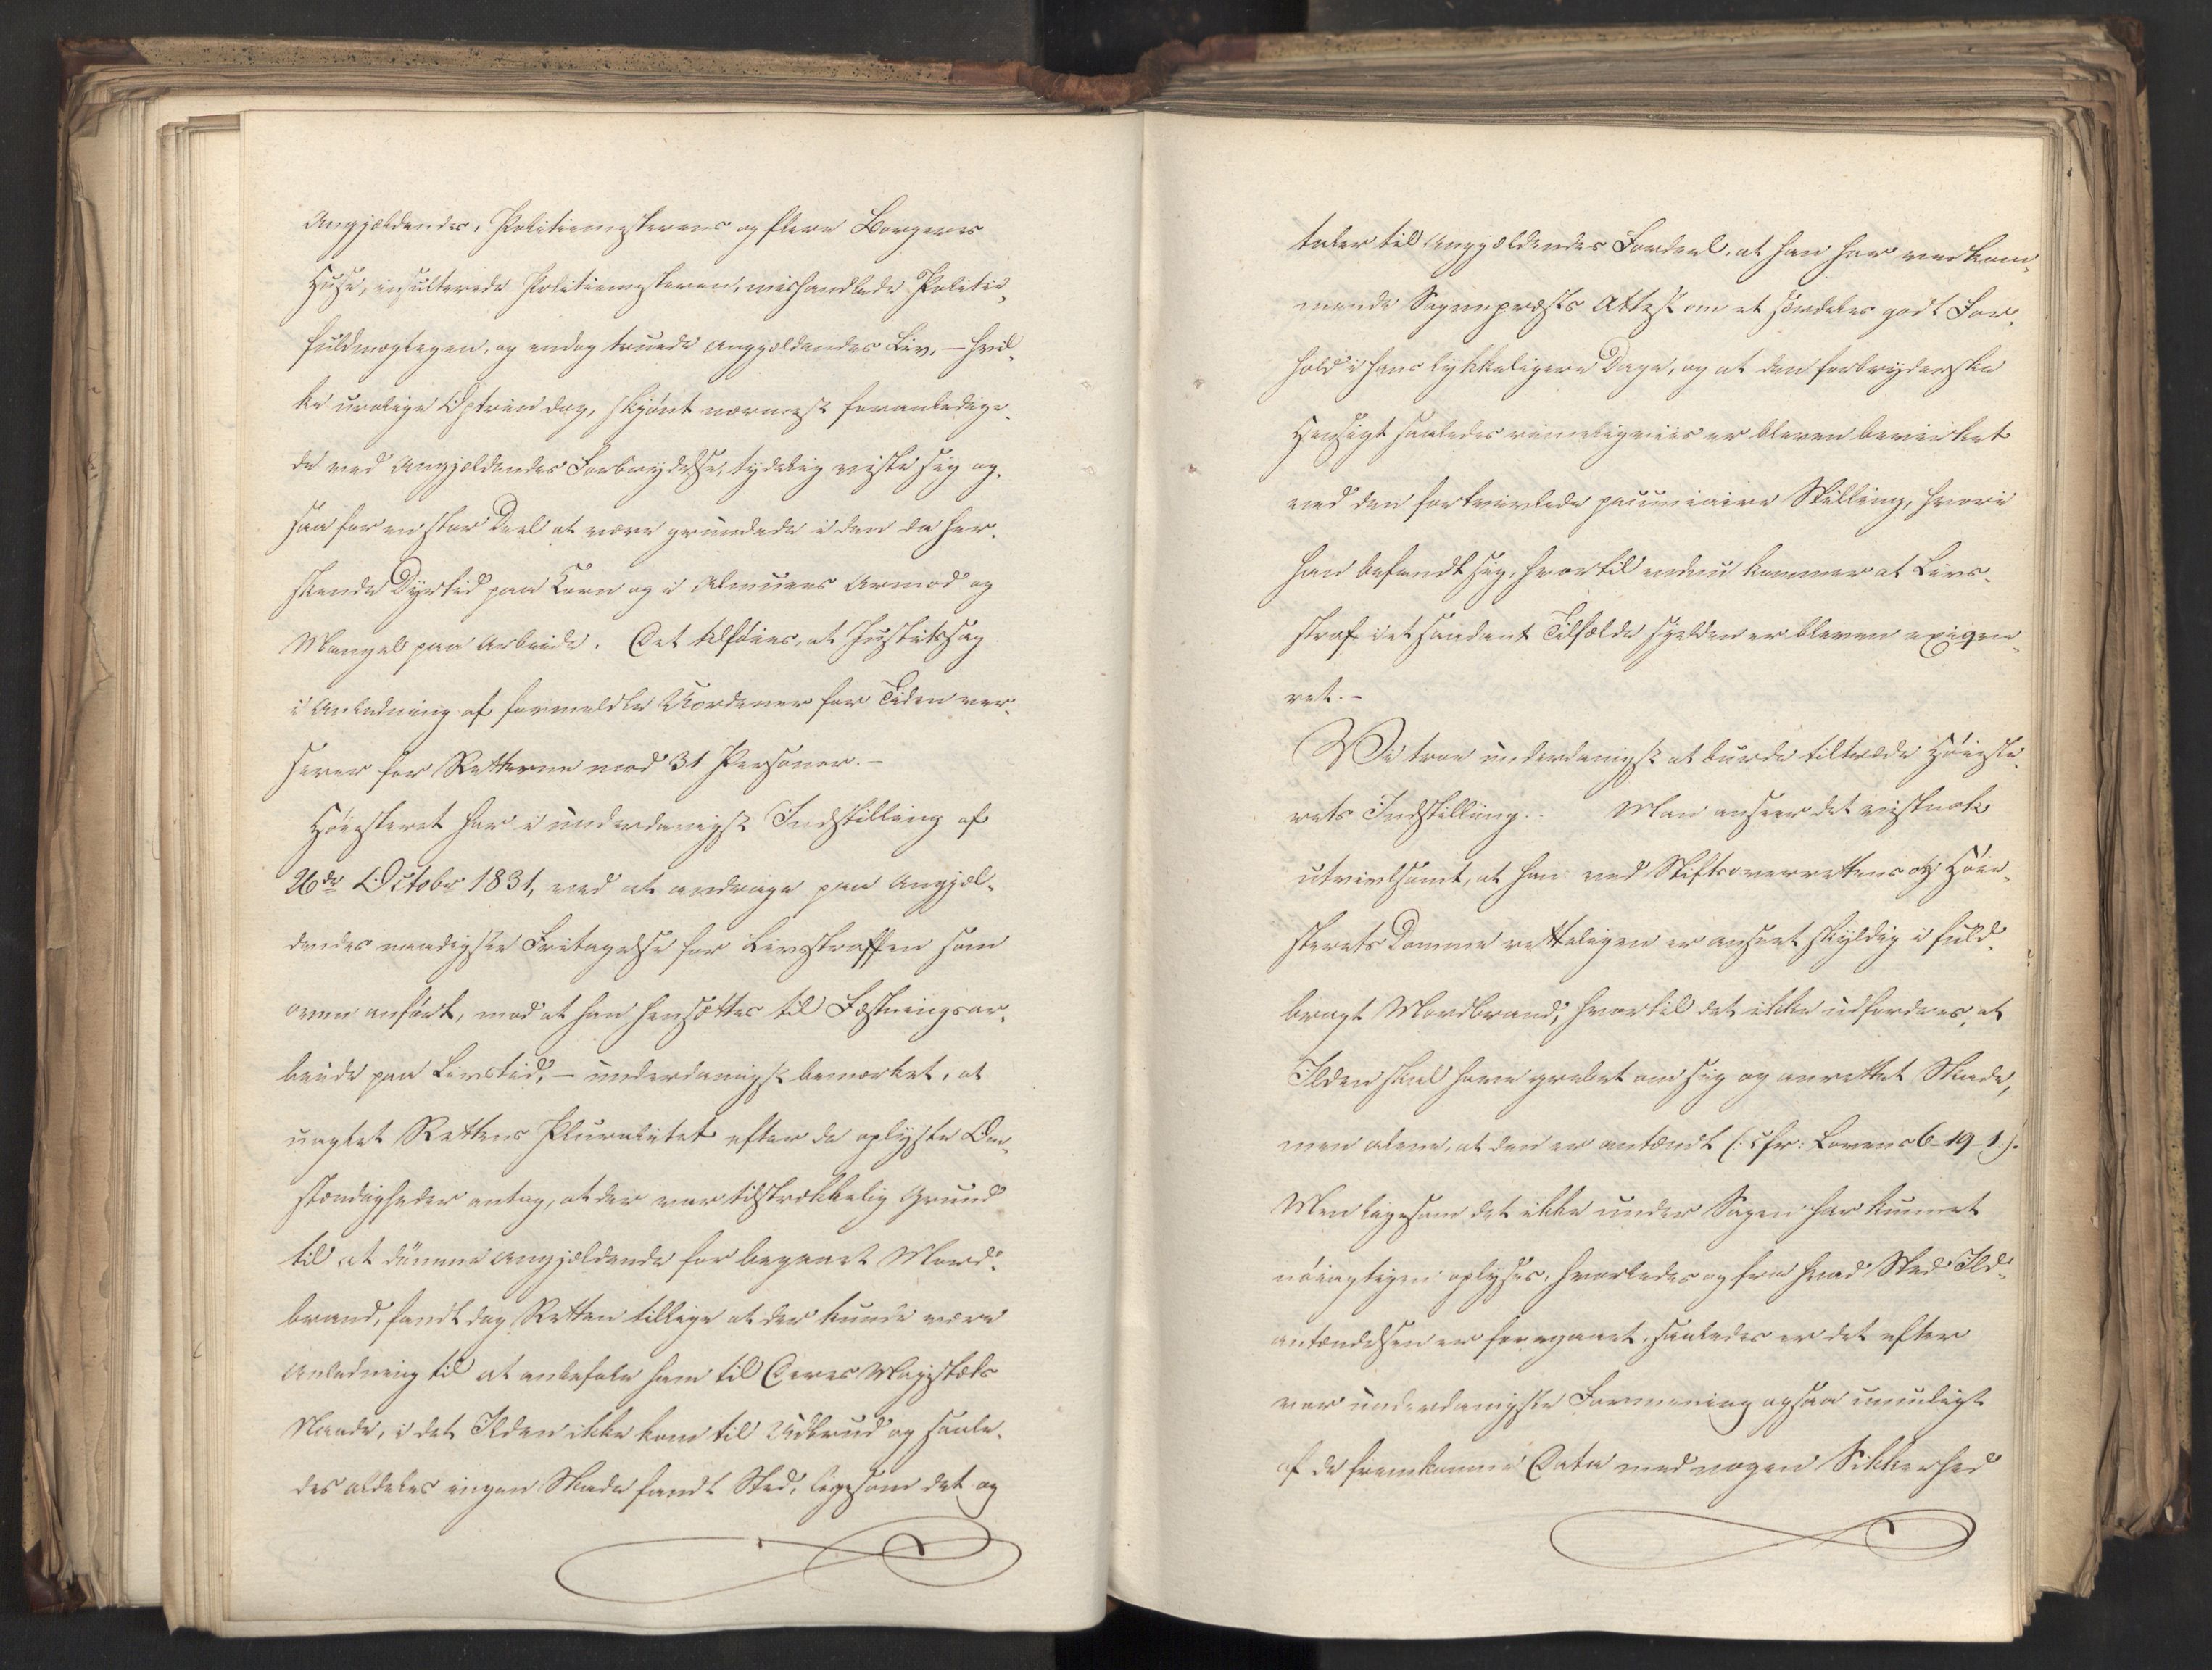 Angjældendes, Politiemesterens og flere Borgeres
Huse, insulterede Politiemesteren, mishandlede Politie-
fuldmægtigen, og endog truede Angjældendes Liv, – hvil-
ke urolige Optrin dog, skjönt nærmest foranledige-
de ved Angjældendes Forbrydelse, tydelig viste sig og-
saa for en stor Deel at være grundede i den da her-
skende Dyrtid paa Korn og i Almuens Armod og
Mangel paa Arbeide. Det tilföies, at Justitssag
i Anledning af formeldte Uordener for Tiden ver-
serer for Retterne mod 31 Personer. –
Höiesteret har i underdanigst Indstilling af
26de Octobr 1831, ved at andrage paa Angjæl-
dendes naadigste Fritagelse for Livsstraffen som
oven anfört, mod at han hensættes til Fæstningsar-
beide paa Livstid, – underdanigst bemærket, at
uagtet Rettens Pluralitet efter de oplyste Om-
stændigheder antog, at der var tilstrækkelig Grund
til at dömme Angjældende for begaaet Mord-
brand, fandt dog Retten tillige at der kunde være
Anledning til at anbefale ham til Deres Majestæts
Naade, i det Ilden ikke kom til Udbrud og saale-
des aldeles ingen Skade fandt Sted, ligesom det og
taler til Angjældendes Fordeel, at han har vedkom-
mende Sognepræsts Attest om et særdeles godt For-
hold i hans lykkeligere Dage, og at den forbryderske
Hensigt saaledes rimeligviis er bleven bevirket
ved den fortvivlede pecuniaire Stilling, hvori
han befandt sig, hvortil endnu kommer at Livs-
straf i et saadant Tilfælde sjelden er bleven exiqve-
ret. –
Vi troe underdanigst at burde tiltræde Höieste-
rets Indstilling. Man anseer det vistnok
utvivlsomt, at han ved Stiftsoverrettens og Höie-
sterets Domme retteligen er anseet skyldig i fuld-
bragt Mordbrand, hvortil det ikke udfordres, at
Ilden skal have grebet om sig og anrettet Skade,
men alene, at den er antændt (: cfr: Lovens 6-19-1 :).
Men ligesom det ikke under Sagen har kunnet
nöiagtigen oplyses, hvorledes og fra hvad Sted Ild-
antændelsen er foregaaet, saaledes er det efter
vor underdanigste Formening ogsaa umuligt
af de fremkomne Data med nogen Sikkerhed